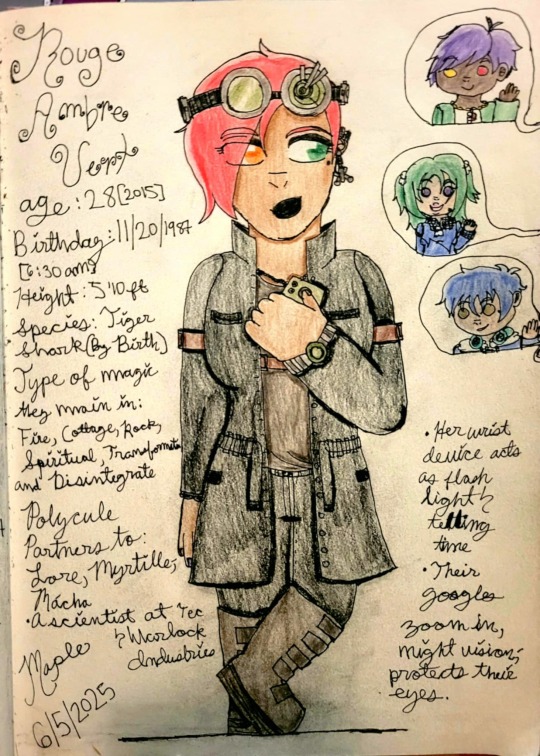 Rouge
Ambre
Vert
age: 28 [2015]
Birthday: 11/20/1987
[6:30 am]
Height: 5'10 ft
Species: Tiger
Shark (By Birth)
Type of magic
they main in:
Fire, Cottage, Rock,
Spiritual, Transformation
and Disintegrate
Polycule
Partners to:
Lore, Myrtille,
Mácha
• A scientist at Tec
& Warlock
Industries
Maple
6/5/2025
• Her wrist
device acts
as flash
light &
telling
time
• Their
googles
zoom in,
night vision,
protects their
eyes.